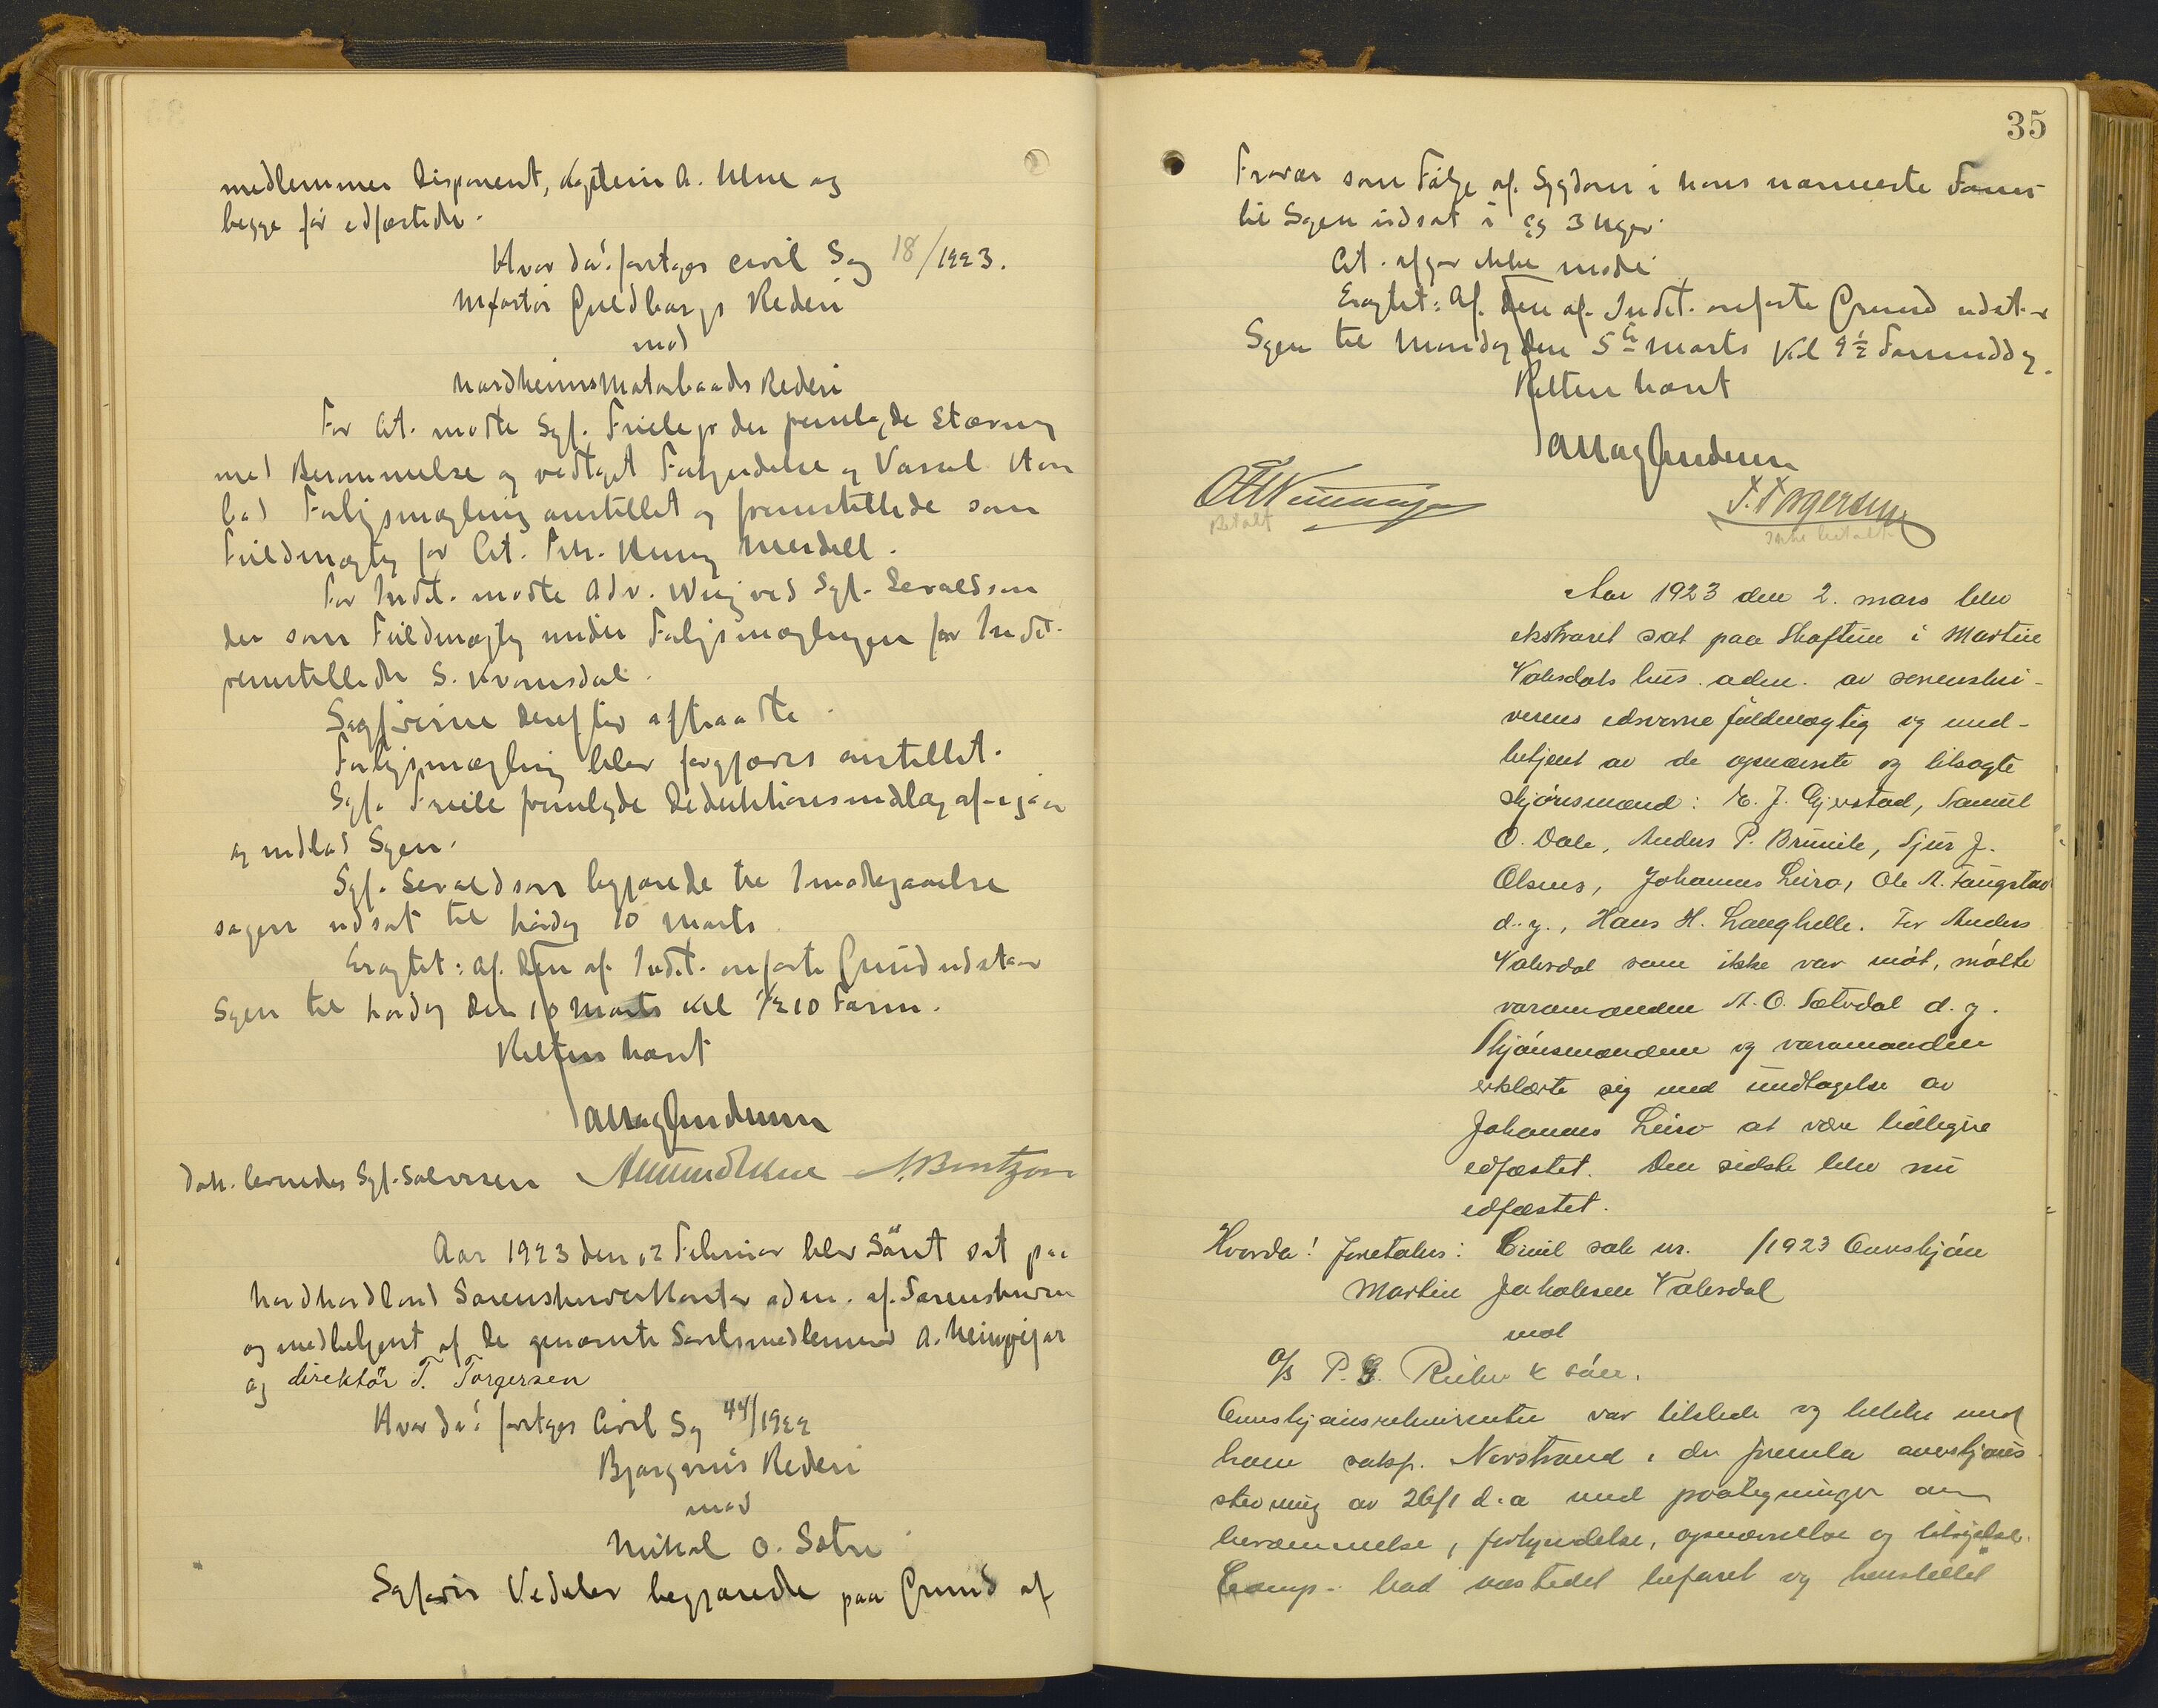 medlemmer Disponent, Kaptein A. Utne og
begge før edfæstede.
Hvorda! foretoges civil Sag 18/1923.
Guldbergs Rederi
mod
Nordheims Motorbaads Rederi
For Cit. mødte Sgf. Friele jr der fremlagde Stævning
med Berammelse og vedtaget Forkyndelse og Varsel. Han
bad Forligsmægling anstillet og fremstillede som
Fuldmægtig for Cit. Henny Merdell.
For Indst. mødte Adv. Wiig ved Sgf. Sevaldsen
der som Fuldmægtig under Forligsmæglingen for Indst.
fremstillede S. Kvamsdal.
Sagførerne derefter aftraadte.
Forligsmægling blev forgjæves anstillet.
Sgf. Friele fremlagde Deduktionsindlæg af igaar
og indlod Sagen.
Sgf. Sevaldsen begjærede til Imødegaaelse
sagen udsat til Lørdag 10 Marts.
Eragtet: Af den af Indst. anførte Grund udsættes
Sagen til Lørdag den 10 Marts Kl ½10 Form.
Retten hævet
A Mag Gundersen
Amund Utne A. Berntzon
Aar 1923 den 12 Februar blev Søret sat paa
Nordhordland Sorenskriverkontor adm. af Sorenskriveren
og medbetjent af de opnævnte Søretsmedlemmer A.
og direktør T. Torgersen
Hvorda! foretoges Civil Sag 44/1922
Bjørgvins Rederi
mod
Mikal O. Sætre
Sagfører Vedeler begjærede paa Grund af
35
Fravær som Følge af Sygdom i hans nærmeste Fami-
lie Sagen udsat i ca 3 Uger.
Cit. afgav ikke møde.
Eragtet: Af den af Indst. anførte Grund udsættes
Sagen til Mandag den 5te Marts Kl 9½ Formiddag.
Retten hævet
A Mag Gundersen
T. Torgersen
Betalt
Ikke betalt
Aar 1923 den 2. mars blev
ekstraret sat paa Skaftun i Martin
Valesdals hus. adm. av sorenskri-
verens edsvorne fuldmægtig og med-
betjent av de opnævnte og tilsagte
skjønsmænd: E. J. Gjerstad, Samuel
O. Dale, Anders P. Brunile, Sjur J.
Olsnes, Johannes Leiro, Ole A. Taugstad
d. y., Hans H. Langhelle. For Anders
Valesdal som ikke var møt, møtte
varamanden A. O. Sætedal d. y.
Skjønsmændene og varamanden
erklærte sig med undtagelse av
Johannes Leiro at være tidligere
edfæstet. Den sidste blev nu
edfæstet.
Hvorda! foretokes: Civil sak nr. /1923 Overskjøn
Martin Jakobsen Valesdal
mot
A/S P. G. Rieber & søn.
Overskjønsrekvirenten var tilstede og likeledes med
ham saksf. Norstrand, der fremla overskjøns
stevning av 26/1 d. a med paategninger om
berammelse, forkyndelse, opnævnelse og tilsigelse.
Comp. bad aastedet befaret og henstillet